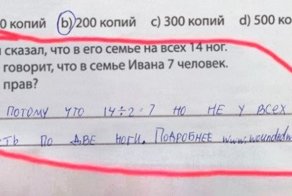 0 копий b) 200 копий c) 300 копий d) 500 ко
сказал, что в его семье на всех 14 ног.
говорит, что в семье Ивана 7 человек.
прав?
ПОТОМУ ЧТО 14÷2=7 НО НЕ У ВСЕХ
ТЬ ПО ДВЕ НОГИ. ПОДРОБНЕЕ www.wounded